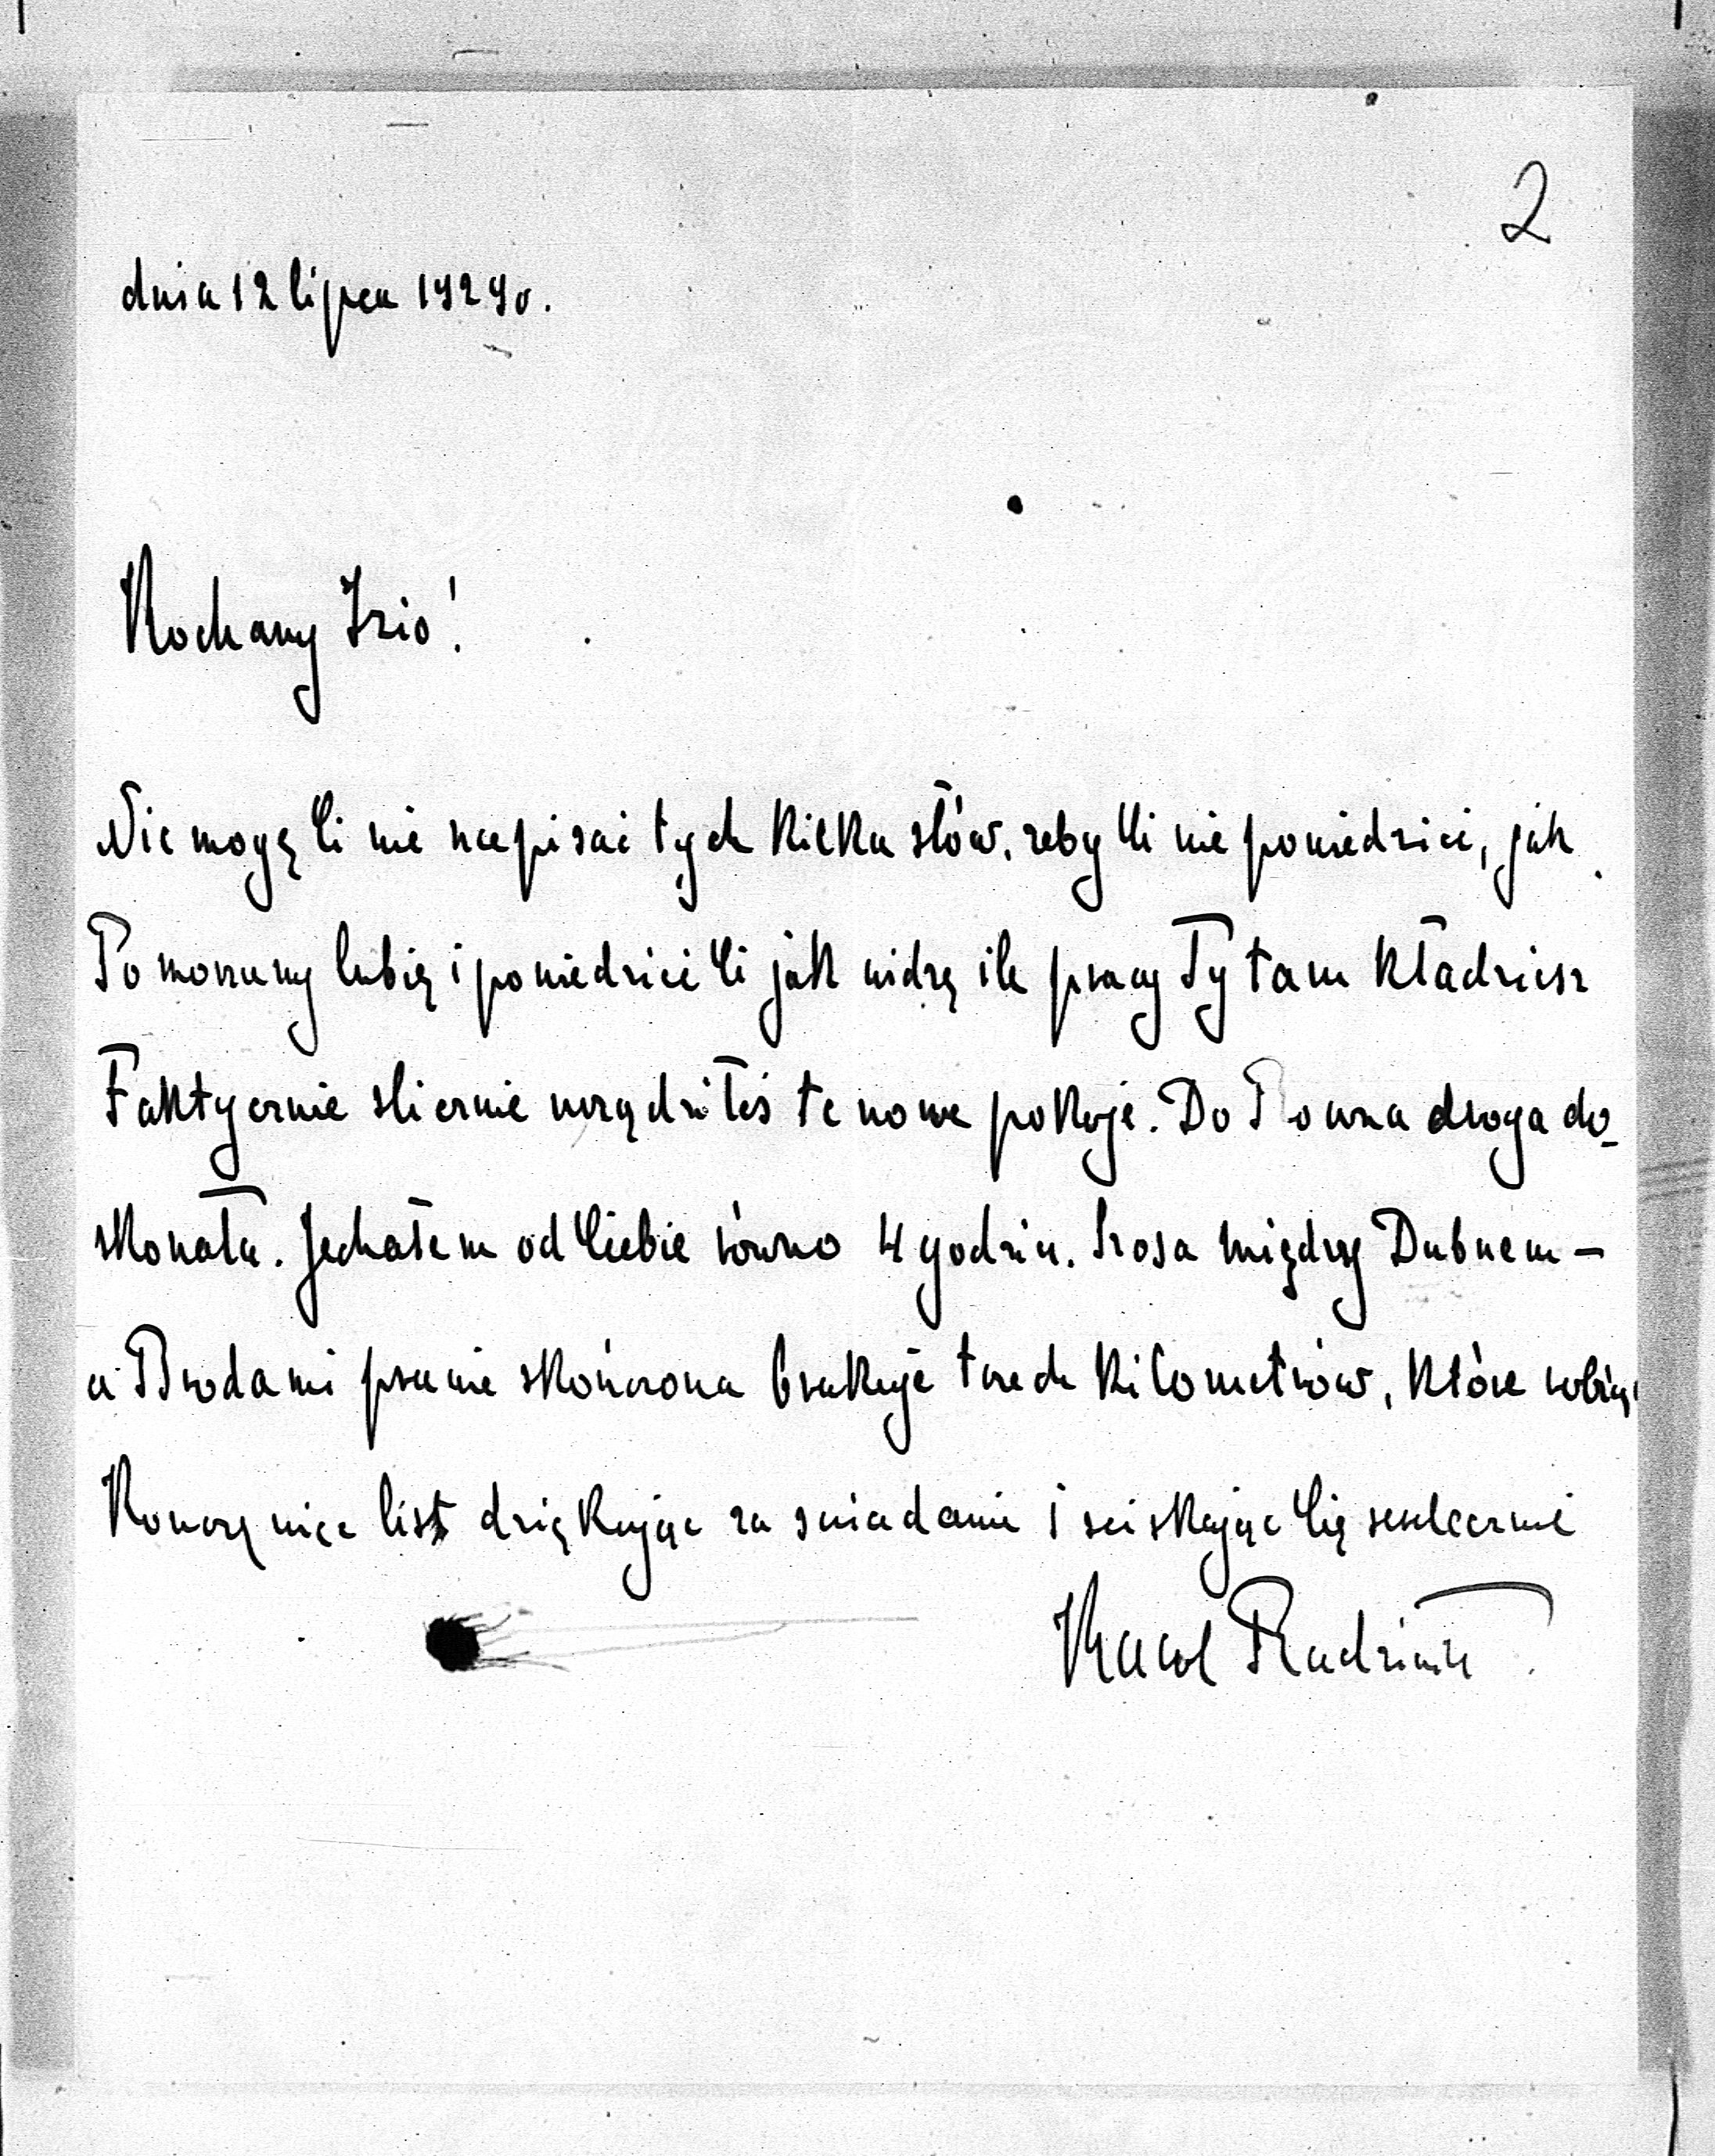 2
dnia 12 lipca 1929 r.
Kochany Izio!
Nie mogę Ci nie napisać tych kilka słów, żeby Ci nie powiedzieć, jak
Pomorzany lubię i powiedzieć Ci jak widzę ile pracy Ty tam kładziesz
Faktycznie ślicznie urządziłeś te nowe pokoje. Do Równa droga do-
skonała. Jechałem od Ciebie równo 4 godzin. Szosa między Dubnem –
a Brodami prawie skończona brakuje trzech kilometrów, które robią
Kończę więc list dziękując za śniadanie i ściskając Cię serdecznie
Karol Radziwiłł